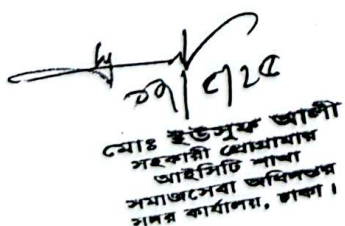 ০৭/৫/২৫
মোঃ ইউসুফ আলী
সহকারী প্রোগ্রামার
আইসিটি শাখা
সমাজসেবা অধিদপ্তর
সদর কার্যালয়, ঢাকা।